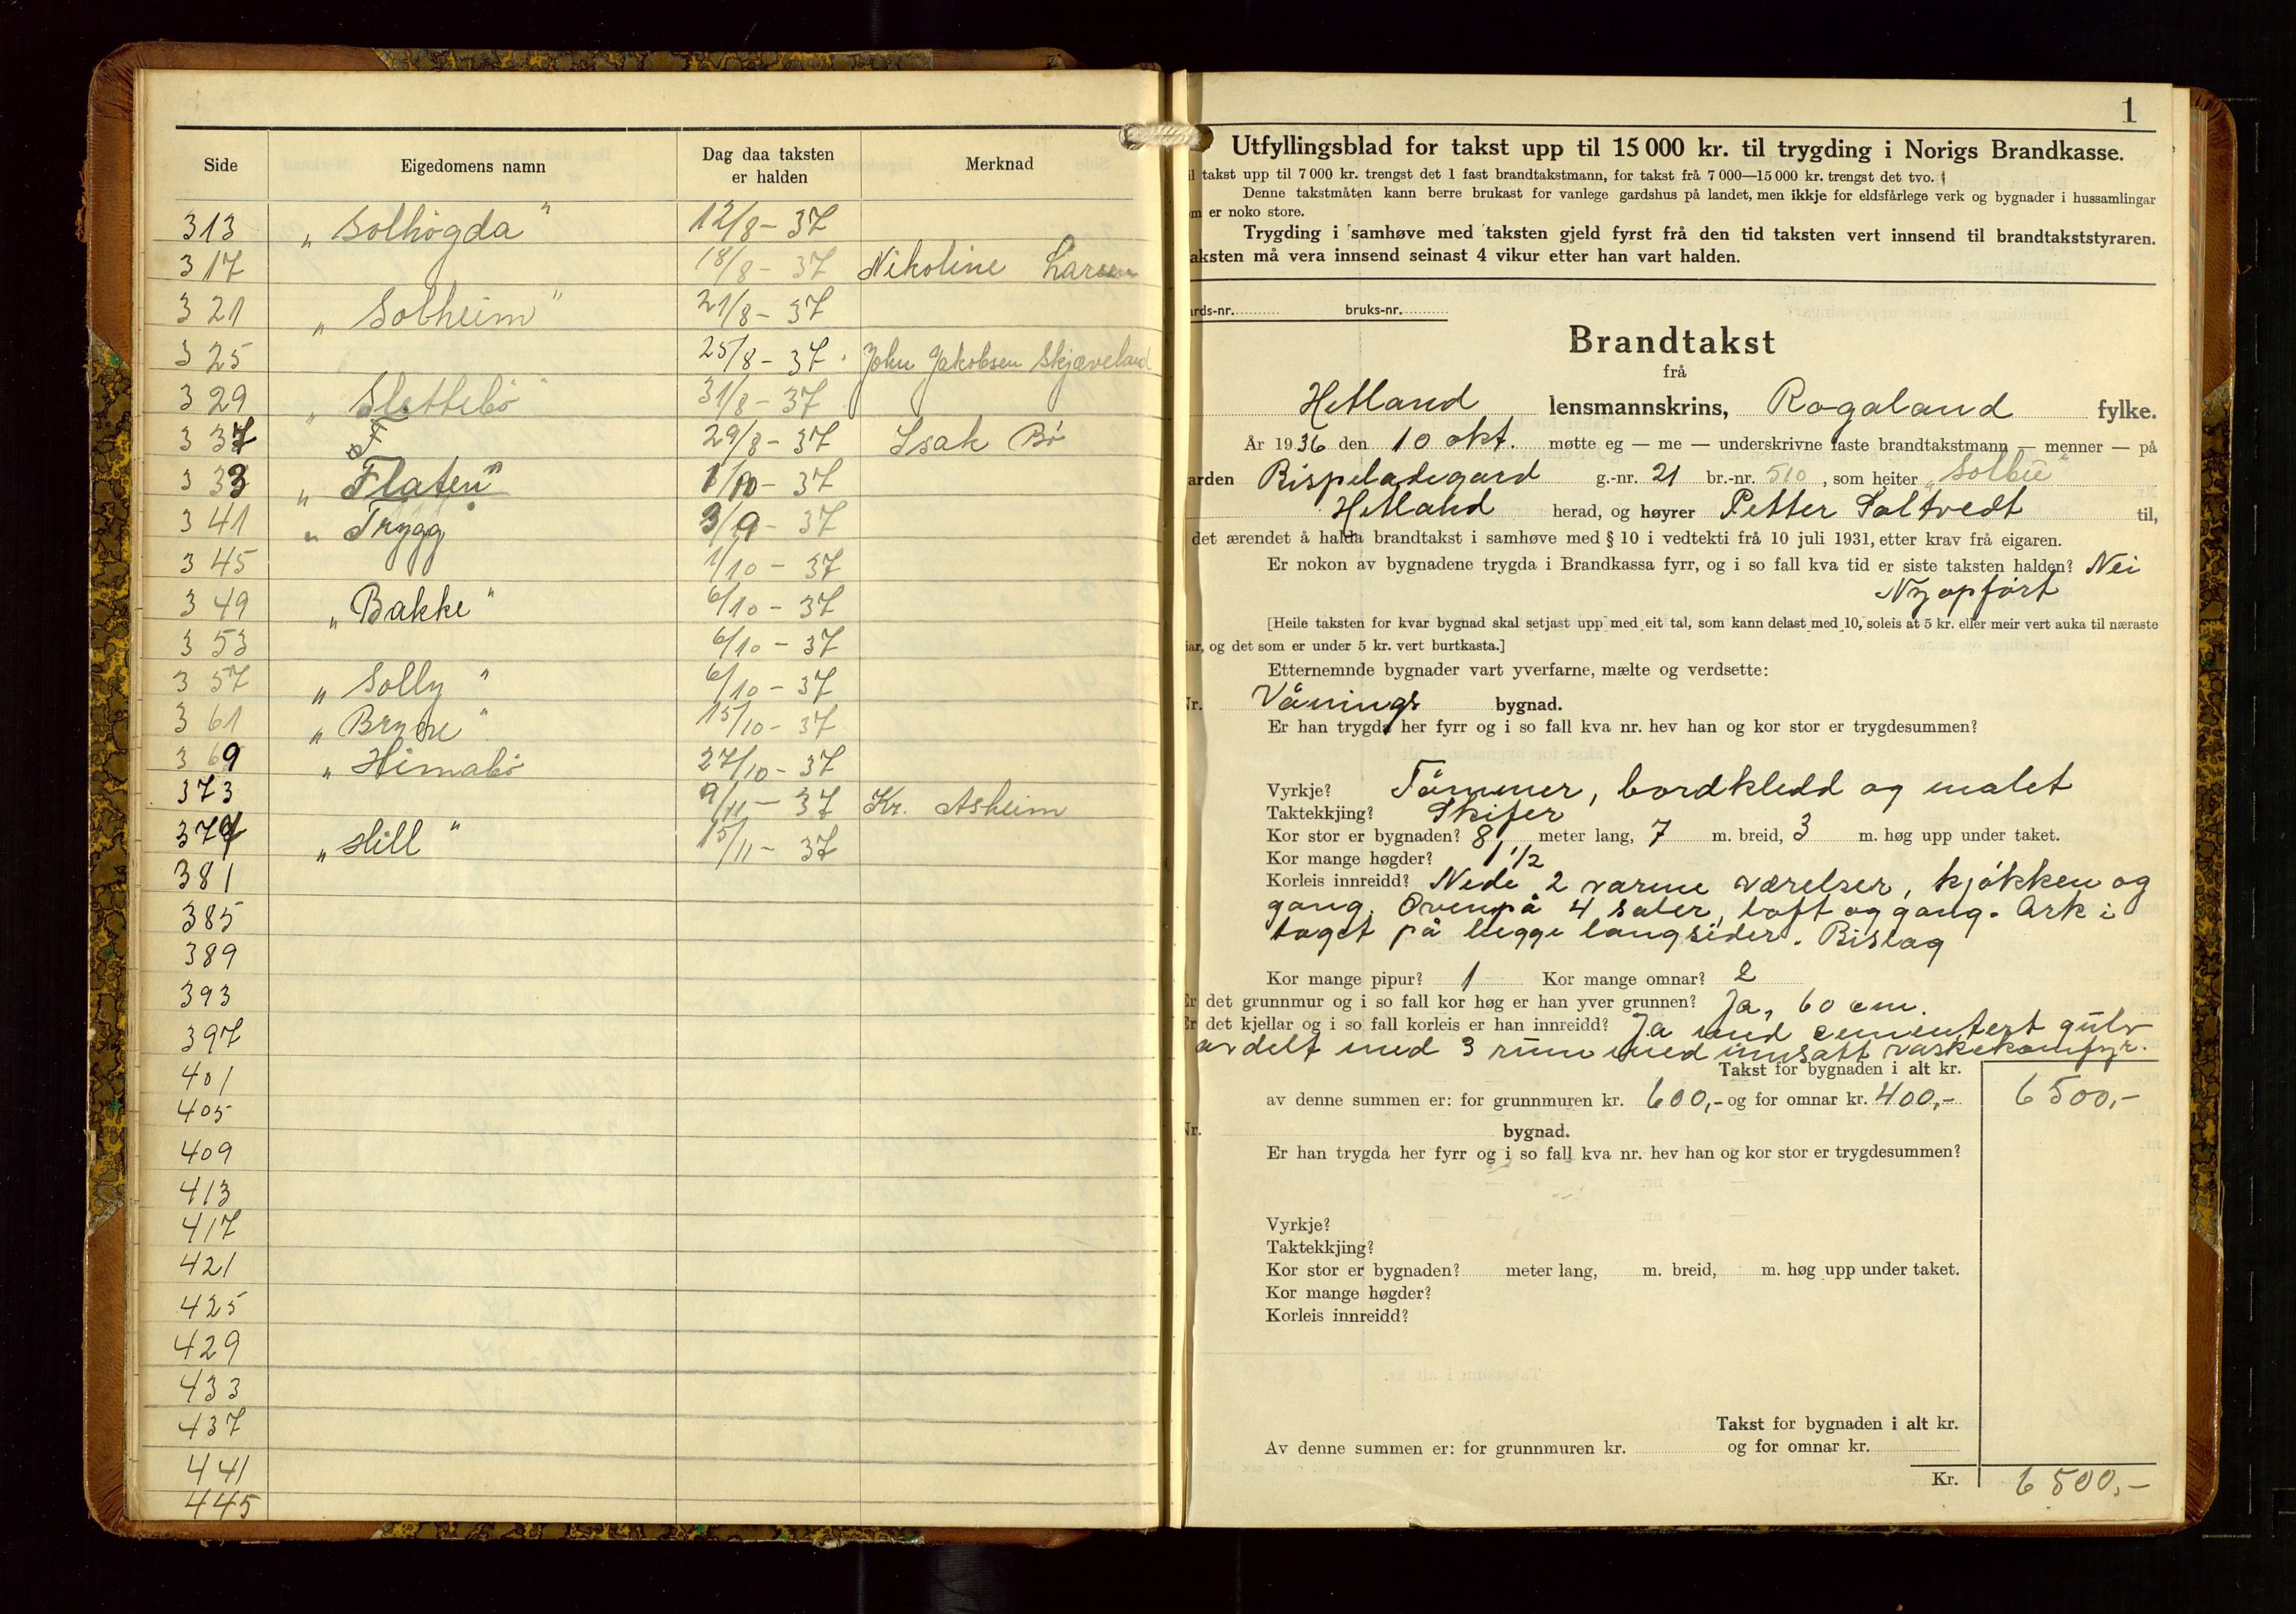 Side Eigedomens namn Dag daa taksten er halden Merknad
313 „Solhøgda" 12/8 - 37
317 18/8 - 37 Nikoline Larsen
321 „Solheim" 21/8 - 37
325 25/8 - 37. John Jakobsen Skjæveland
329 „Slettebø" 31/8 - 37
337 F 29/8 - 37 Isak Bø
333 „Flaten" 1/10 - 37
341 „Trygg" 3/9 - 37
345 1/10 - 37
349 „Bakke" 6/10 - 37
353 6/10 - 37
357 „Solly" 6/10 - 37
361 „Bryne" 15/10 - 37
369 „Himabø 27/10 - 37
373 9/11 - 37 Kr. Asheim
377 „Hill" 15/11 - 37
381
385
389
393
397
401
405
409
413
417
421
425
429
433
437
441
445
1
Utfyllingsblad for takst upp til 15 000 kr. til trygding i Norigs Brandkasse.
takst upp til 7 000 kr. trengst det 1 fast brandtakstmann, for takst frå 7 000—15 000 kr. trengst det tvo.
Denne takstmåten kann berre brukast for vanlege gardshus på landet, men ikkje for eldsfårlege verk og bygnader i hussamlingar
er noko store.
Trygding i samhøve med taksten gjeld fyrst frå den tid taksten vert innsend til brandtakststyraren.
aksten må vera innsend seinast 4 vikur etter han vart halden.
rds-nr. bruks-nr.
Brandtakst
frå
Hetland lensmannskrins, Rogaland fylke.
År 1936 den 10 okt. møtte eg — me — underskrivne faste brandtakstmann — menner — på
arden Bispeladegard g.-nr. 21 br.-nr. 510, som heiter „Solbu"
Hetland herad, og høyrer Petter Saltvedt til,
det ærendet å halda brandtakst i samhøve med § 10 i vedtekti frå 10 juli 1931, etter krav frå eigaren.
Er nokon av bygnadene trygda i Brandkassa fyrr, og i so fall kva tid er siste taksten halden? Nei
Nyopført
[Heile taksten for kvar bygnad skal setjast upp med eit tal, som kann delast med 10, soleis at 5 kr. eller meir vert auka til næraste
iar, og det som er under 5 kr. vert burtkasta.]
Etternemnde bygnader vart yverfarne, mælte og verdsette:
Nr. Vånings bygnad.
Er han trygda her fyrr og i so fall kva nr. hev han og kor stor er trygdesummen?
Vyrkje? Tømmer, bordkledd og malet
Taktekkjing? Skifer
Kor stor er bygnaden? 8 meter lang, 7 m. breid, 3 m. høg upp under taket.
Kor mange høgder? 1 1/2
Korleis innreidd? Nede 2 varme værelser, kjøkken og
gang. Ovenpå 4 saler, loft og gang. Ark i
taget på begge langsider. Bislag
Kor mange pipur? 1 Kor mange omnar? 2
Er det grunnmur og i so fall kor høg er han yver grunnen? Ja, 60 cm.
Er det kjellar og i so fall korleis er han innreidd? Ja med cementert gulv
avdelt med 3 rum med innsatt vaskekomfyr.
Takst for bygnaden i alt kr.
av denne summen er: for grunnmuren kr. 600,- og for omnar kr. 400,- 6500,-
Nr. bygnad.
Er han trygda her fyrr og i so fall kva nr. hev han og kor stor er trygdesummen?
Vyrkje?
Taktekkjing?
Kor stor er bygnaden? meter lang, m. breid, m. høg upp under taket.
Kor mange høgder?
Korleis innreidd?
Takst for bygnaden i alt kr.
Av denne summen er: for grunnmuren kr. og for omnar kr.
Kr. 6500,-